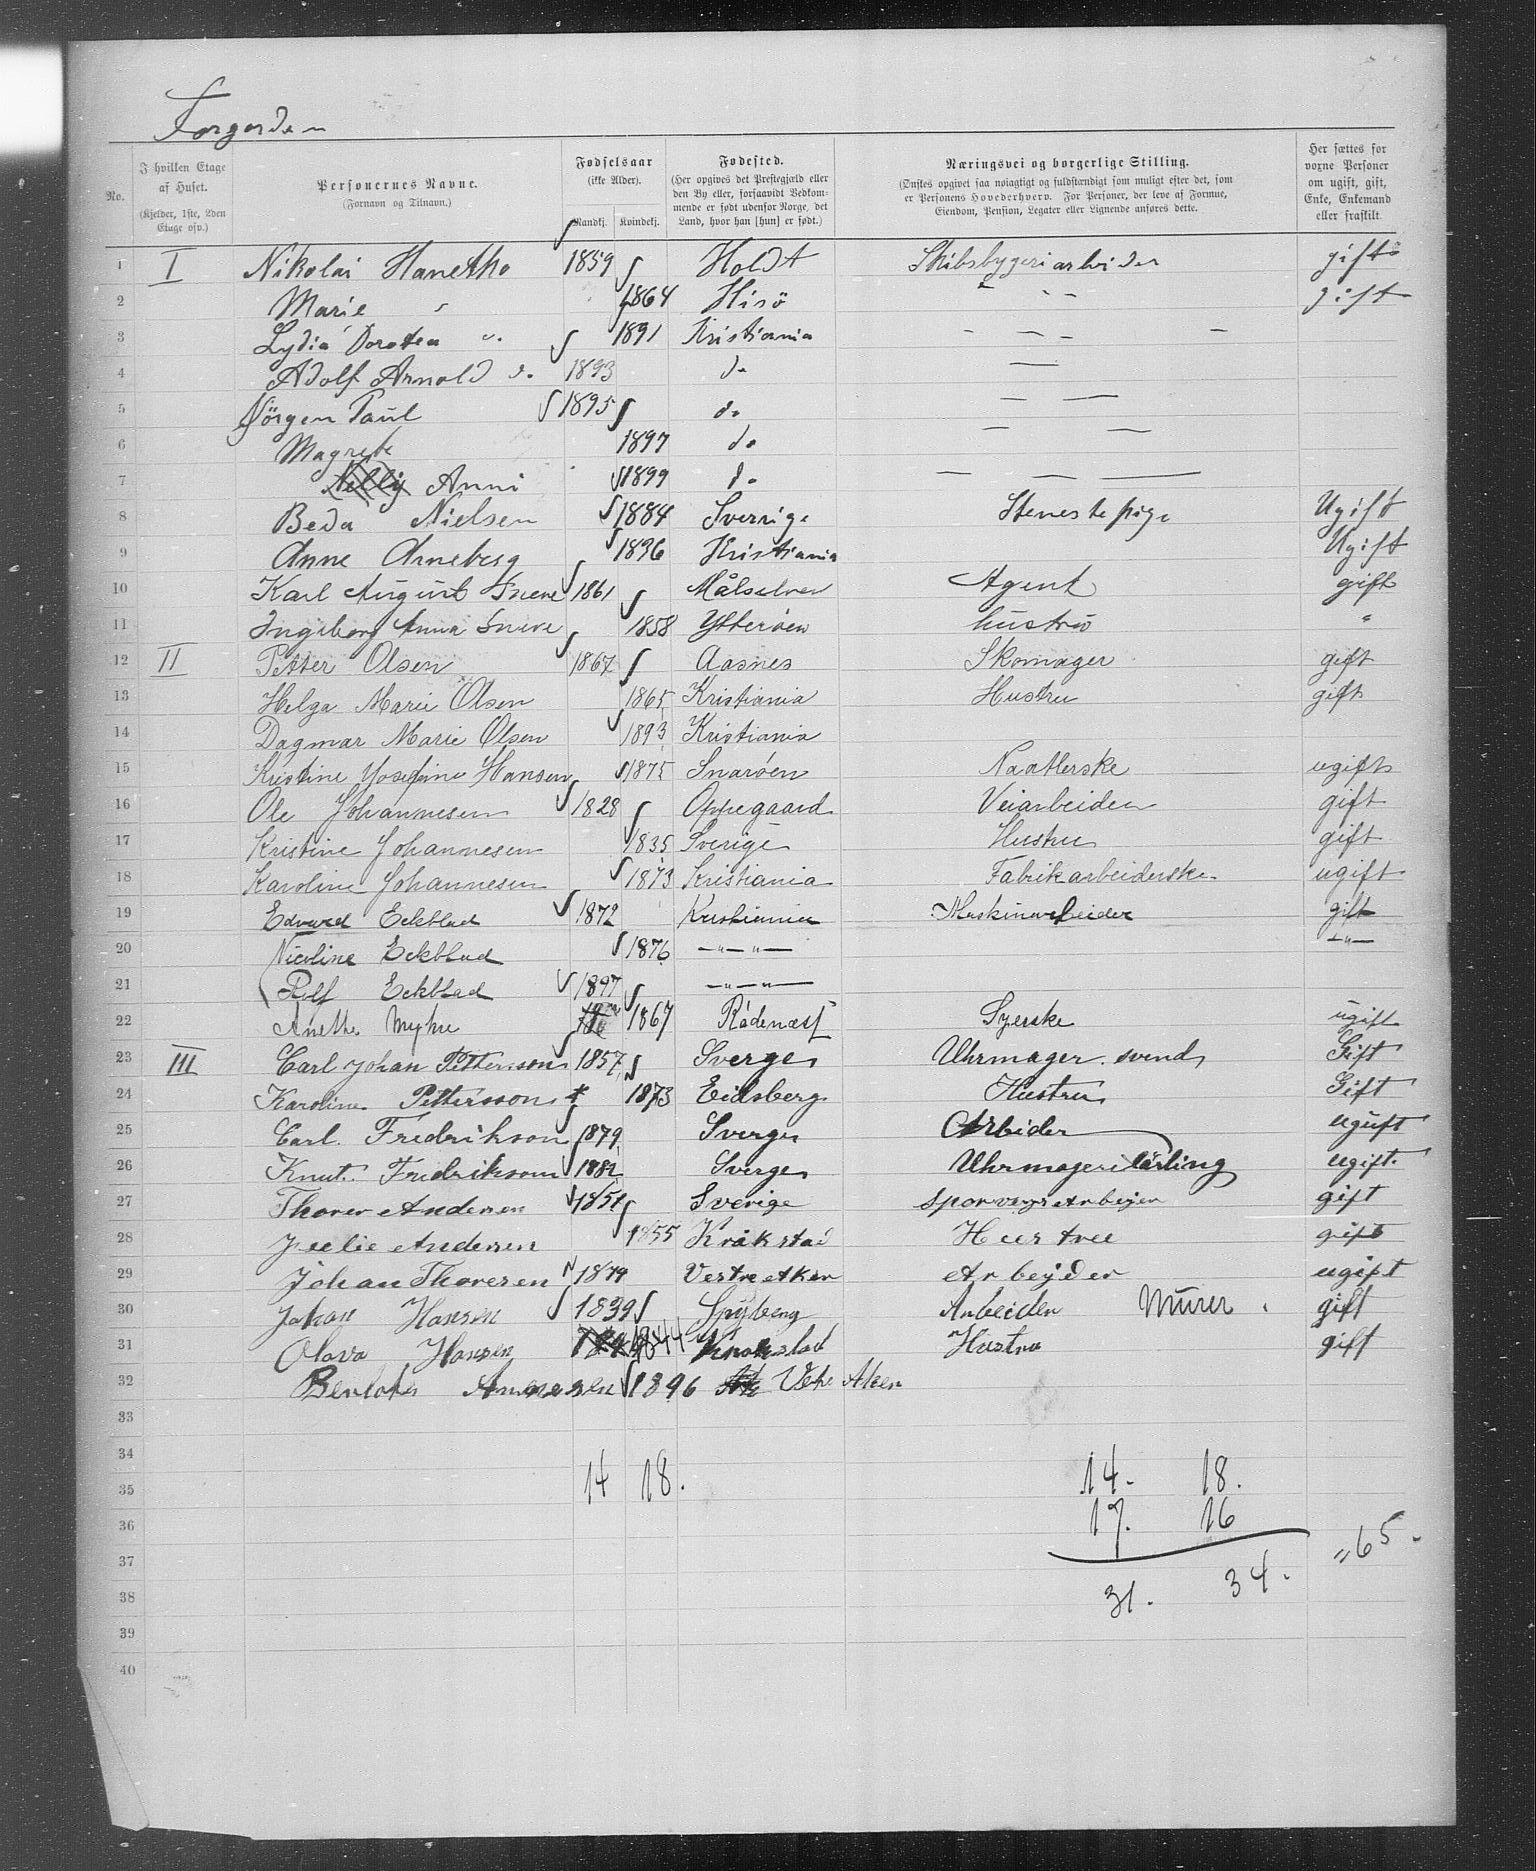 Forgorden
No.
I hvilken Etage af Huset.
(Kjelder, 1ste, 2den Etage osv.)
Personernes Navne.
(Fornavn og Tilnavn.)
Fødselsaar
(ikke Alder).
Mandkj. Kvindekj.
Fødested.
(Her opgives det Prestegjæld eller den By eller, forsaavidt Vedkommende er født udenfor Norge, det Land, hvor han [hun] er født.)
Næringsvei og borgerlige Stilling.
(Ønskes opgivet saa nøiagtigt og fuldstændigt som muligt efter det, som er Personens Hovederhverv. For Personer, der leve af Formue, Eiendom, Pension, Legater eller Lignende anføres dette.
Her sættes for vorne Personer om ugift, gift, Enke, Enkemand eller fraskilt.
1 I Nikolai Hanetho 1859 Holdt Skibsbygeriarbeider gift
2 Marie " 1864 Hisö " - - gift
3 Lydia Dorotea " 1891 Kristiania - - - -
4 Adolf Arnold d. 1893 do —
5 Jörgen Paul 1895 do — —
6 Magrete 1897 do — —
7 Nelly Anni 1899 do — — —
8 Beda Nielsen 1884 Sverrige Stenestepige Ugift
9 Anne Arneberg 1896 Kristiania Ugift
10 Karl August Sneve 1861 Målselven Agent gift
11 Ingeborg Anna Sneve 1858 Ytterøen hustru "
12 II Petter Olsen 1867 Aasnes Skomager gift
13 Helga Marie Olsen 1865 Kristiania Hustru gift
14 Dagmar Marie Olsen 1893 Kristiania
15 Kristine Josefine Hansen 1875 Snarøen Naatlerske ugift
16 Ole Johannesen 1828 Oppegaard Veiarbeider gift
17 Kristine Johannesen 1835 Sverige Hustru gift
18 Karoline Johannesen 1873 Kristiania Fabrikarbeiderske ugift
19 Edvard Eckblad 1872 Kristiania Maskinarbeider gift
20 Nicoline Eckblad 1876 —"—"— —"—
21 Rolf Eckblad 1897 —"—"—
22 Anethe Myhre 1867 Rödenæss Syerske ugift
23 III Carl Johan Pettersson 1857 Sverge Uhrmager svend Gift
24 Karoline Pettersson 1873 Eidsberg Hustru Gift
25 Carl. Fredrikson 1879 Sverge Arbeider ugift
26 Knut. Fredrikson 1882 Sverge Uhrmagerilärling ugift.
27 Thorer Andersen 1851 Sverige Sporveysarbeyer gift
28 Julie Andersen 1855 Kråkstad Hustru gift
29 Johan Thoresen 1879 Vestre Aker Arbeyder ugift
30 Johan Hansen 1839 Spyberg Arbeider Murer gift
31 Olava Hansen 1844 Kraakstad Hustru gift
32 Andersen 1896 Vestre Aker
33
34
35 14 18. 14. 18.
36 17. 16
37 "65.
38 31. 34.
39
40